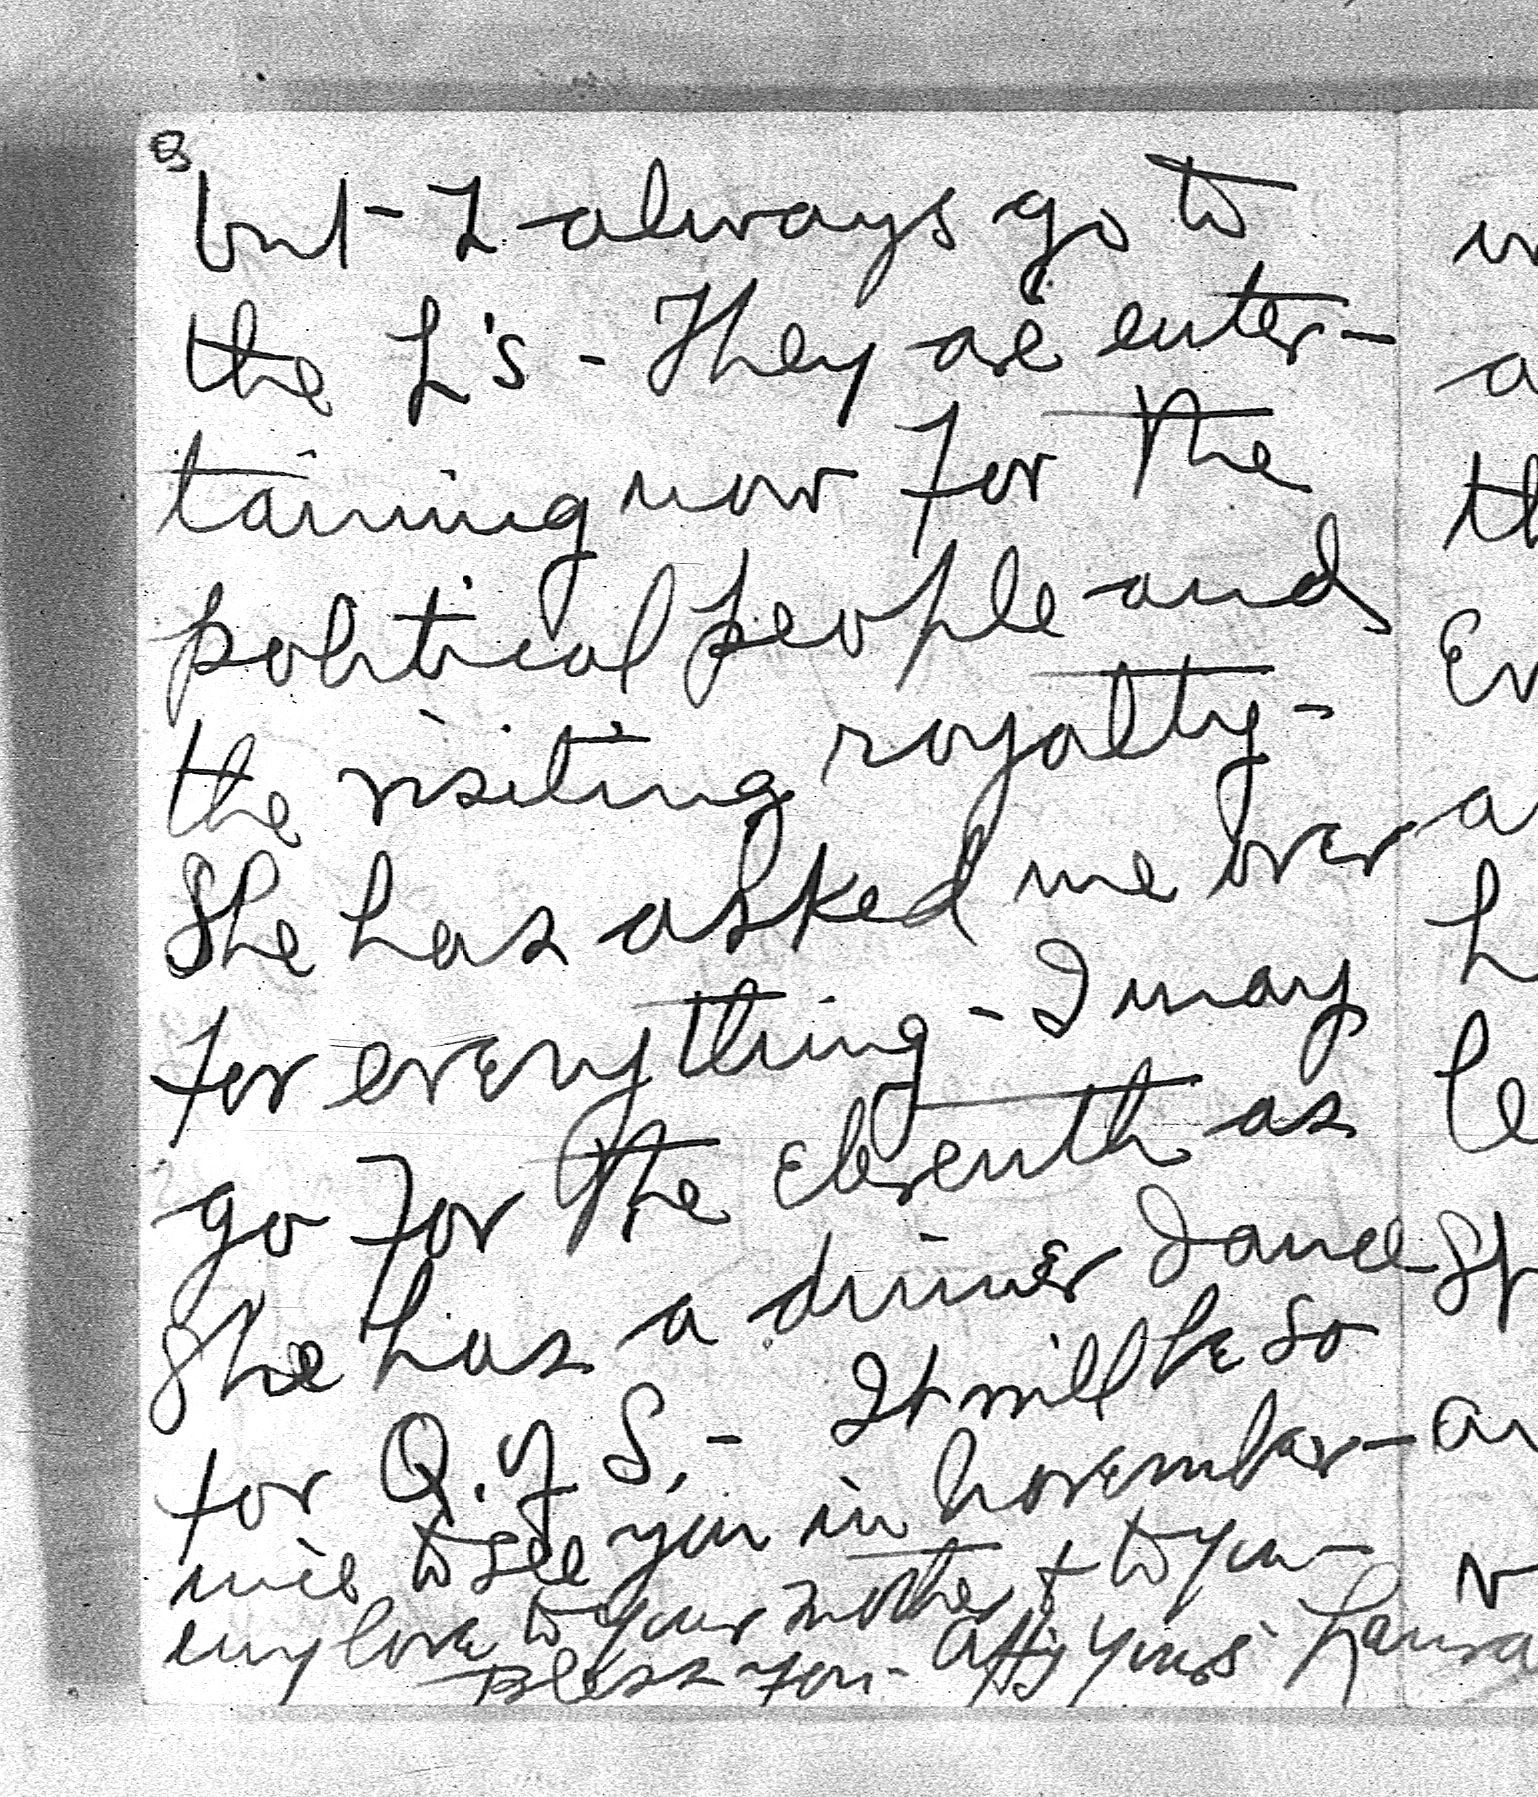 but - I always go to
the L's - They are enter-
taining now for the
political people and
the visiting royalty -
She has asked me over
for everything - I may
go for the eleventh as
she has a dinner dance
for Q. of S. - It will be so
nice to see you in November -
my love to your mother & to you -
Bless you - Affy yours Laura